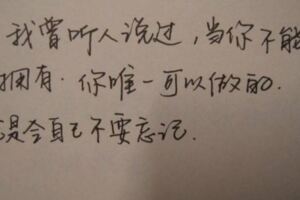 我曾听人说过,当你不能
拥有.你唯一可以做的.
是令自己不要忘记.